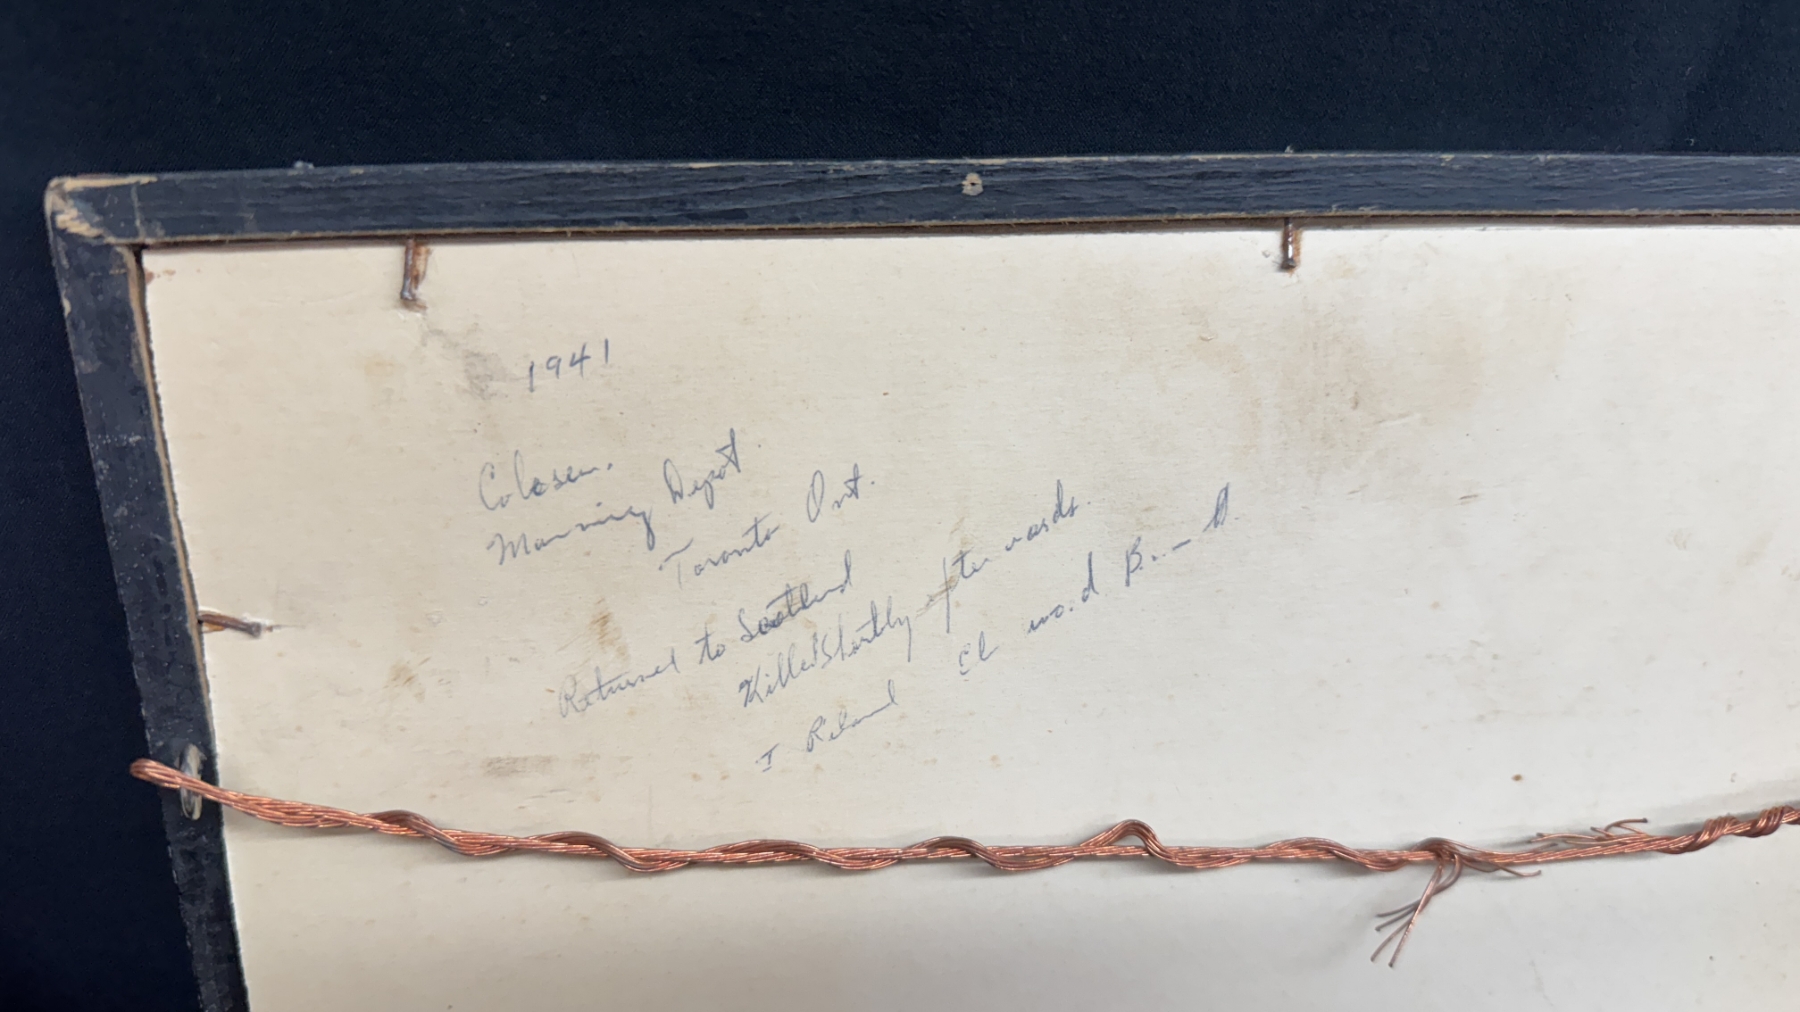 1941
Manning Depot.
Toronto Ont.
Returned to Scotland
Killed Shortly afterwards.
I Roland